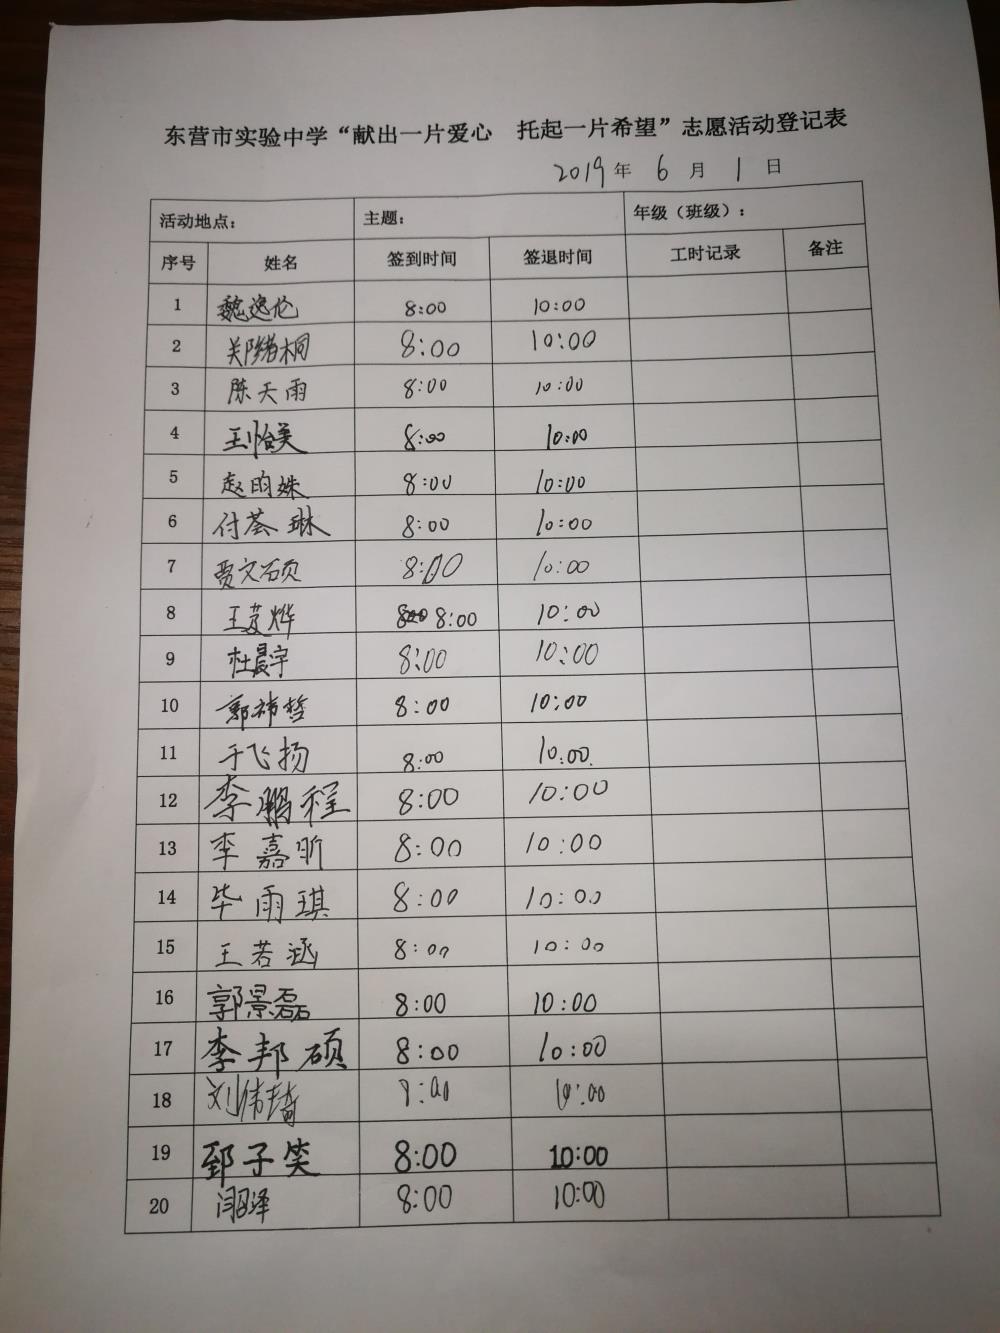 东营市实验中学“献出一片爱心 托起一片希望”志愿活动登记表
2019年 6 月 1 日
活动地点： 主题： 年级（班级）：
序号 姓名 签到时间 签退时间 工时记录 备注
1 魏逸伦 8:00 10:00
2 8:00 10:00
3 陈天雨 8:00 10:00
4 王怡美 8:00 10:00
5 赵昀姝 8:00 10:00
6 付荟琳 8:00 10:00
7 贾文硕 8:00 10:00
8 8:00 10:00
9 杜晨宇 8:00 10:00
10 郭祎哲 8:00 10:00
11 于飞扬 8:00 10:00
12 李鹏程 8:00 10:00
13 李嘉昕 8:00 10:00
14 毕雨琪 8:00 10:00
15 王若涵 8:00 10:00
16 郭景磊 8:00 10:00
17 李邦硕 8:00 10:00
18 刘伟琦 8:00 10:00
19 郅子笑 8:00 10:00
20 8:00 10:00